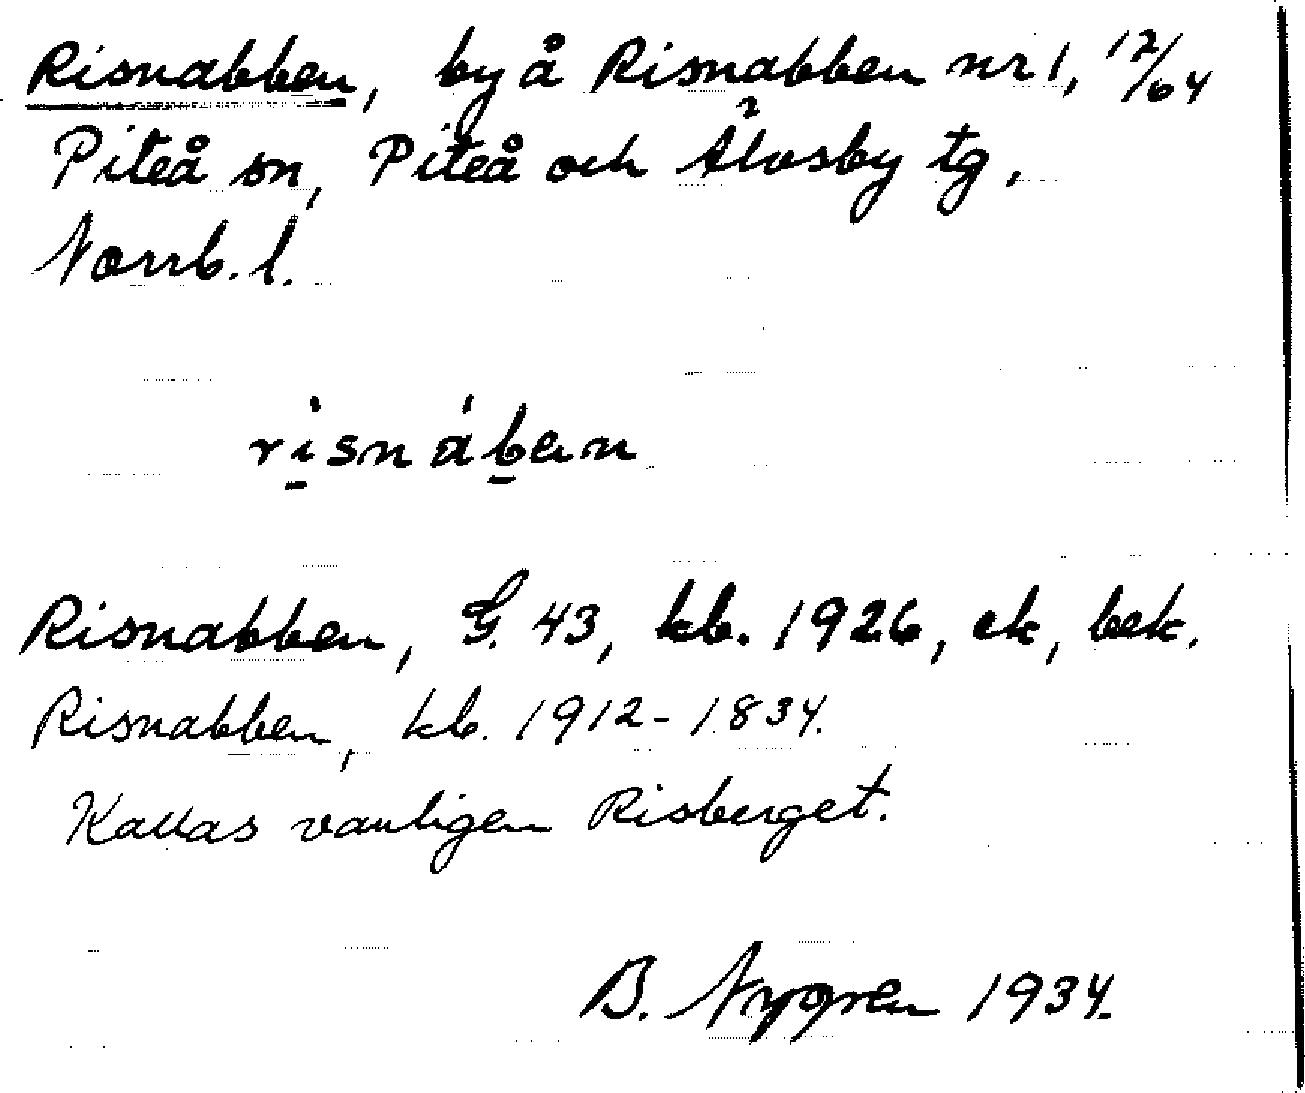 Risnabben, by å Risnabben nr 1, 12/64
Piteå sn, Piteå och Älvsby tg,
Norrb. l.
risnábən
Risnabben, G. 43, kb. 1926, ek, bek.
Risnabben, kb. 1912-1834.
Kallas vanligen Risberget.
B. Nygren 1934.